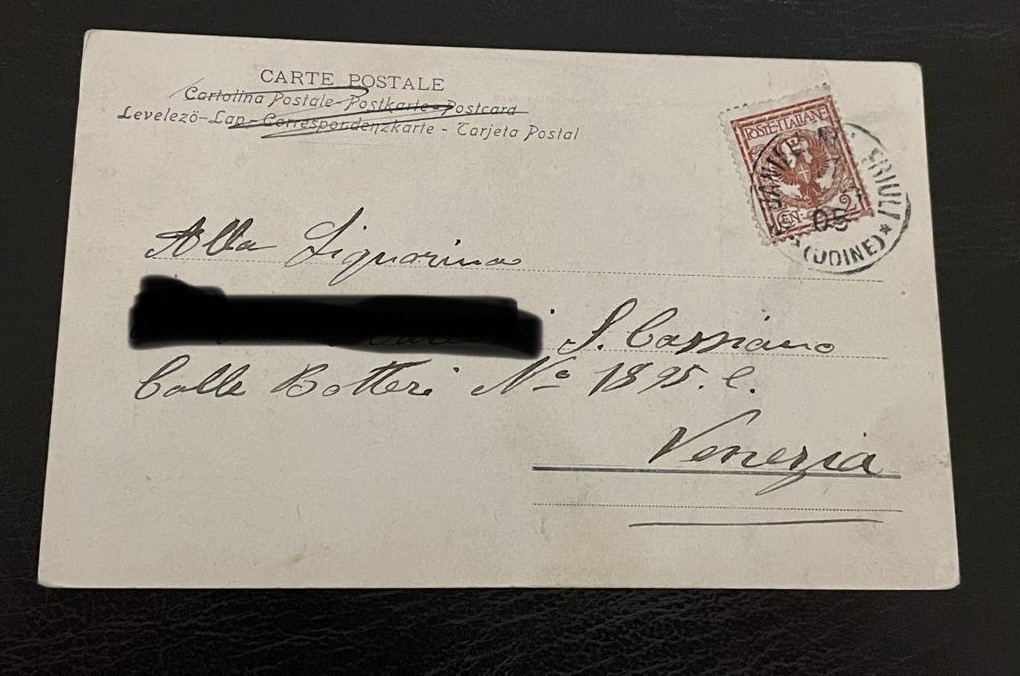 CARTE POSTALE
Cartolina Postale - Postkarte - Postcard
Levelező-Lap - Correspondenzkarte - Tarjeta Postal
POSTE ITALIANE
CEN. 2
FRIULI
05
(UDINE)
Alla Signorina
S. Cassiano
Calle Botteri No 1895. C.
Venezia